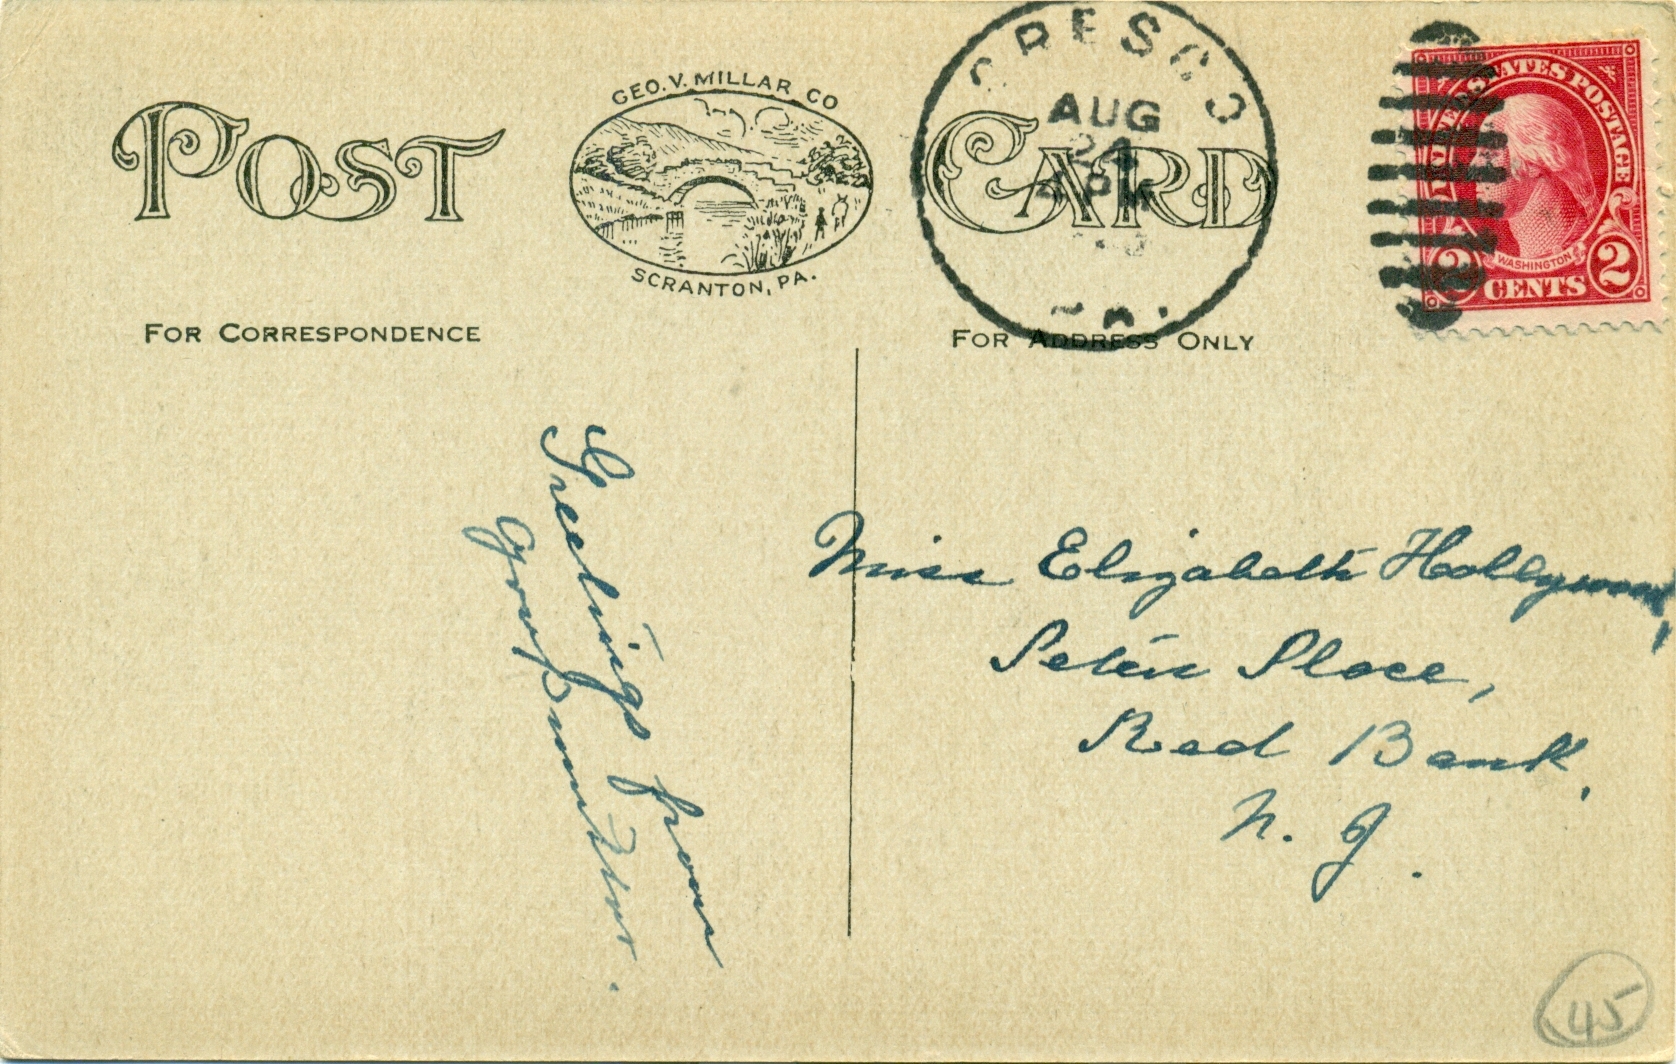 POST CARD
GEO. V. MILLAR CO
SCRANTON, PA.
CRESCO
AUG
24
4 PM
PA.
UNITED STATES POSTAGE
WASHINGTON
2 CENTS 2
FOR CORRESPONDENCE
FOR ADDRESS ONLY
Greetings from
your
Miss Elizabeth Hollywood,
Peters Place,
Red Bank,
N. J.
45